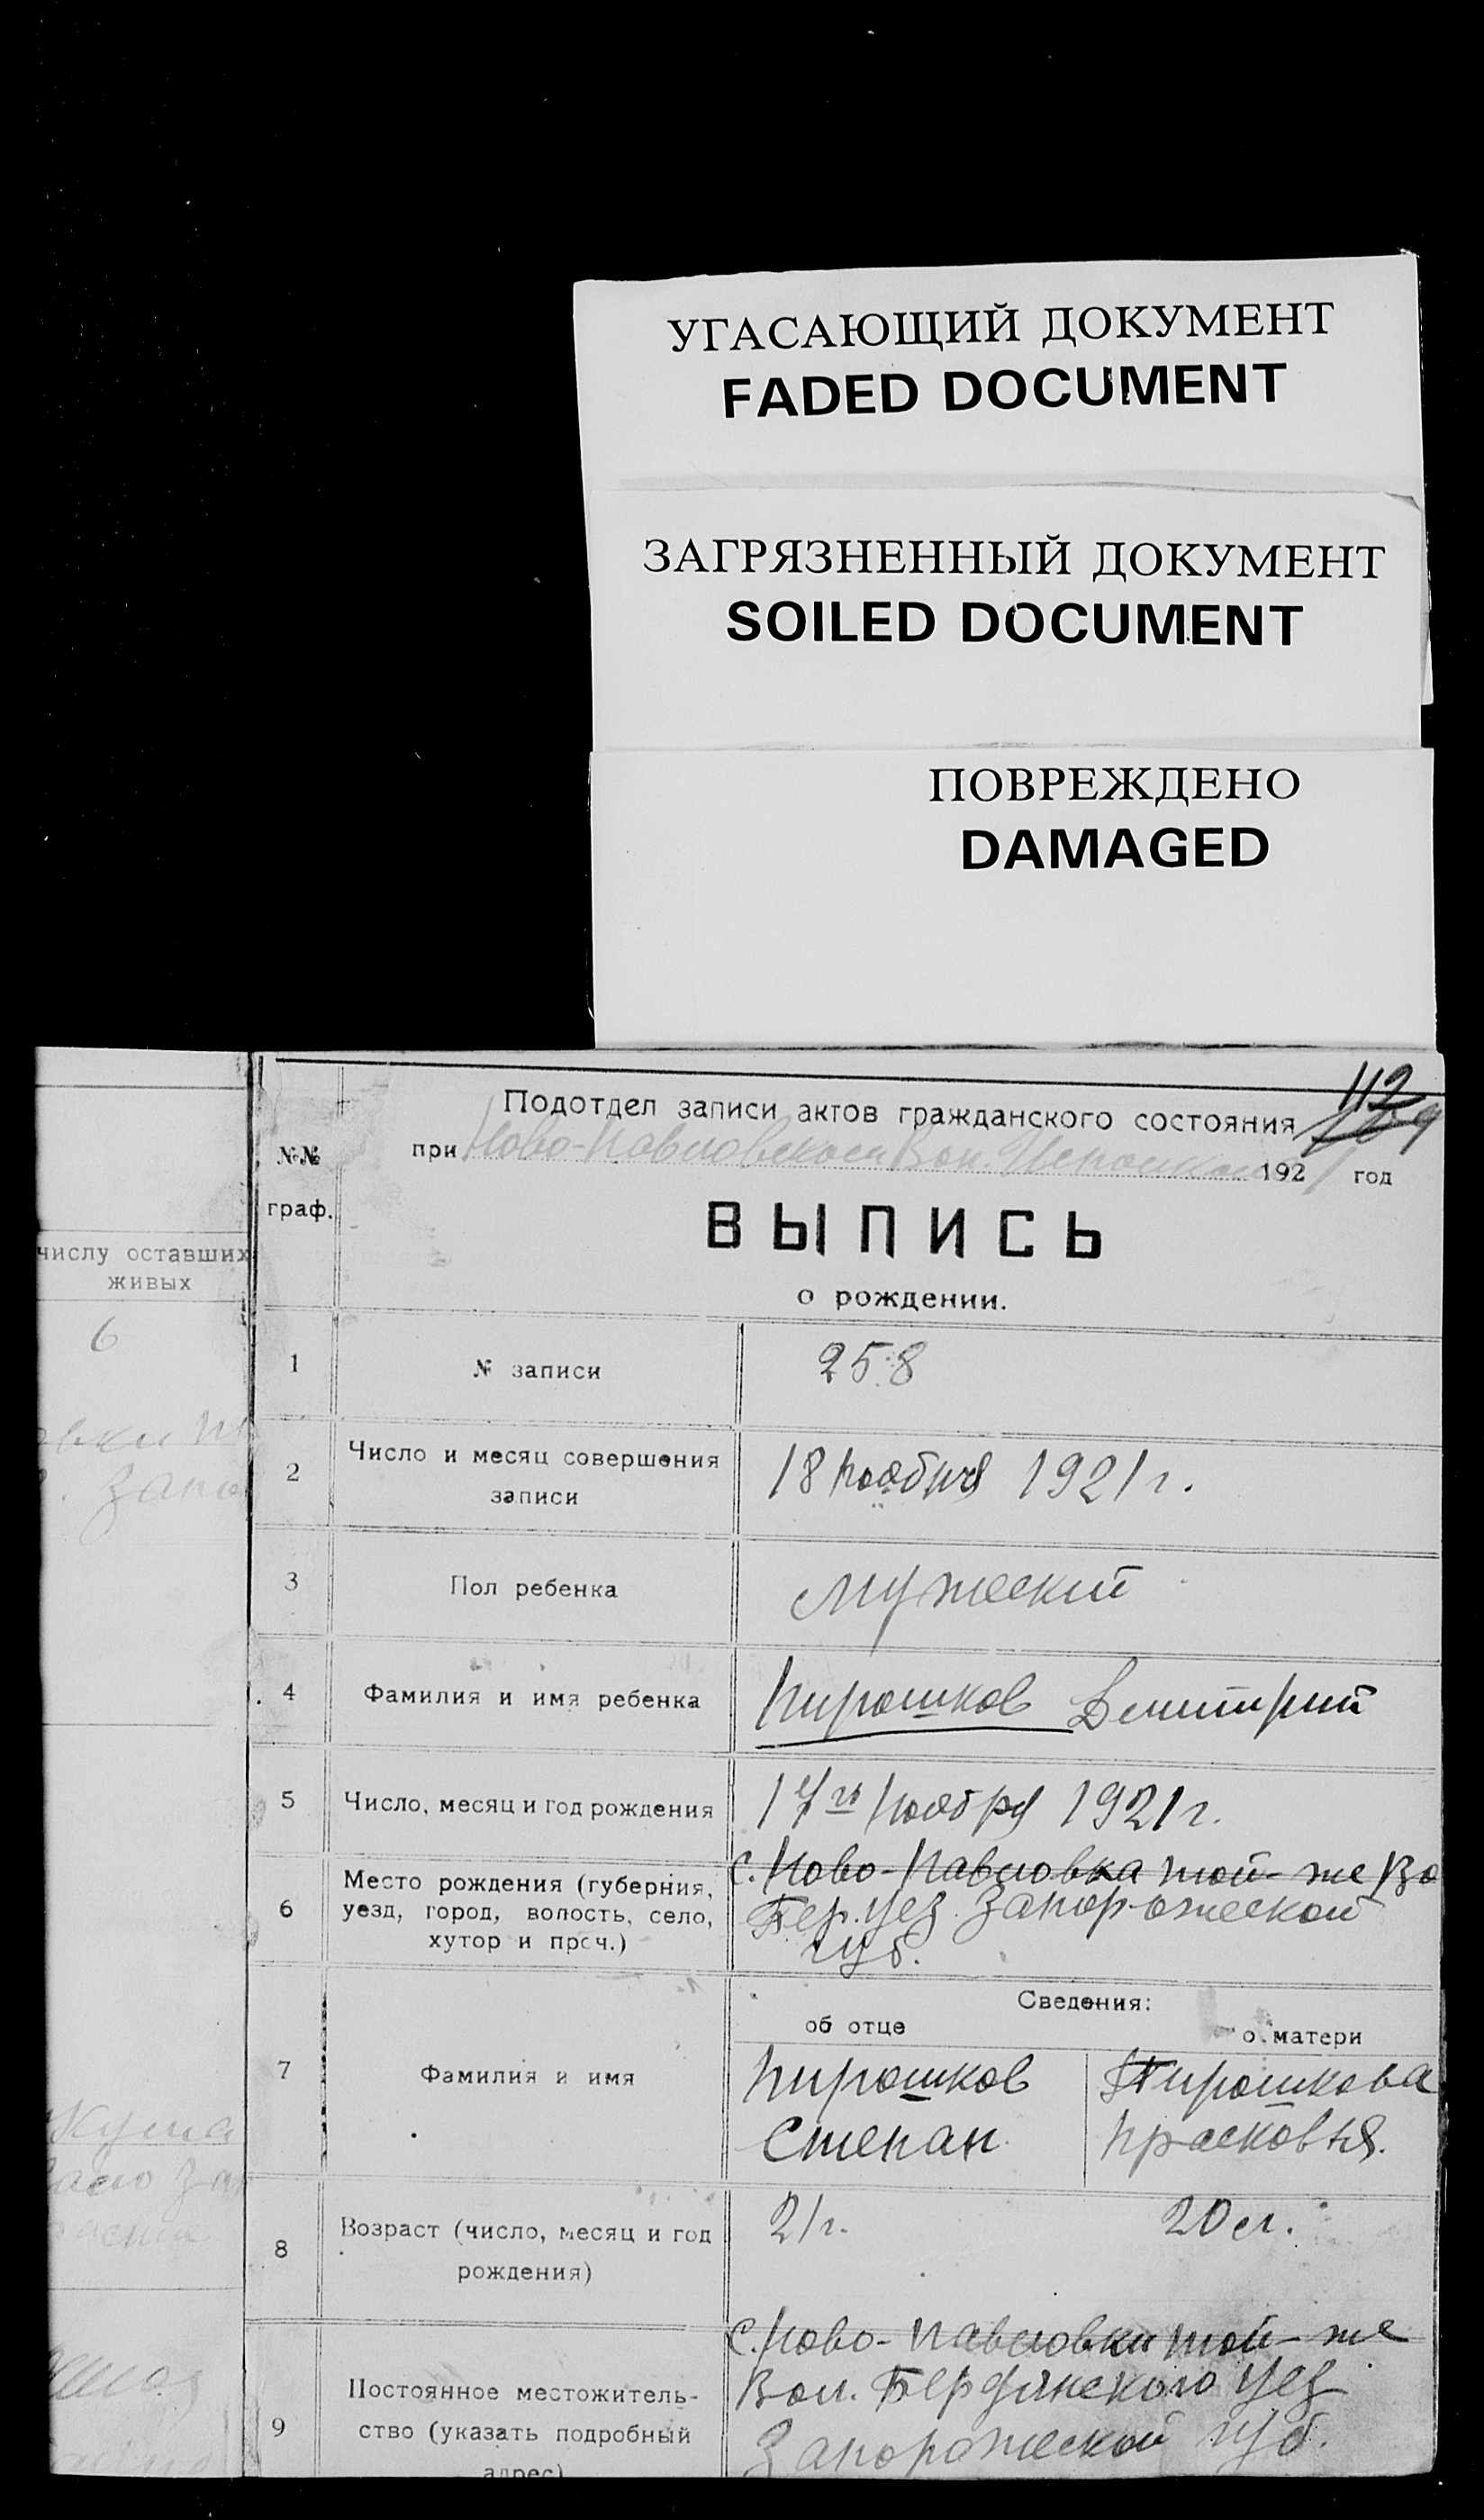 УГАСАЮЩИЙ ДОКУМЕНТ
FADED DOCUMENT
ЗАГРЯЗНЕННЫЙ ДОКУМЕНТ
SOILED DOCUMENT
ПОВРЕЖДЕНО
DAMAGED
112
Подотдел записи актов гражданского состояния
при Ново-Павловском Вол. Исполкоме 1921 год
№№
граф.
ВЫПИСЬ
о рождении.
числу оставших
живых
6
1 № записи 258
2 Число и месяц совершения
записи
18 ноября 1921 г.
3 Пол ребенка мужеский
4 Фамилия и имя ребенка Пирошков Димитрий
5 Число, месяц и год рождения 17го ноября 1921 г.
6 Место рождения (губерния,
уезд, город, волость, село,
хутор и проч.)
с. Ново-Павловка той-же Во
Бер. уез. Запорожеской
губ.
Сведения:
об отце о матери
7 Фамилия и имя
Пирошков
Степан
Пирошкова
Прасковья.
8 Возраст (число, месяц и год
рождения)
21 г. 20 л.
9 Постоянное местожитель-
ство (указать подробный
адрес)
С. Ново-Павловки той-же
Вол. Бердянского уез
Запорожеской губ.